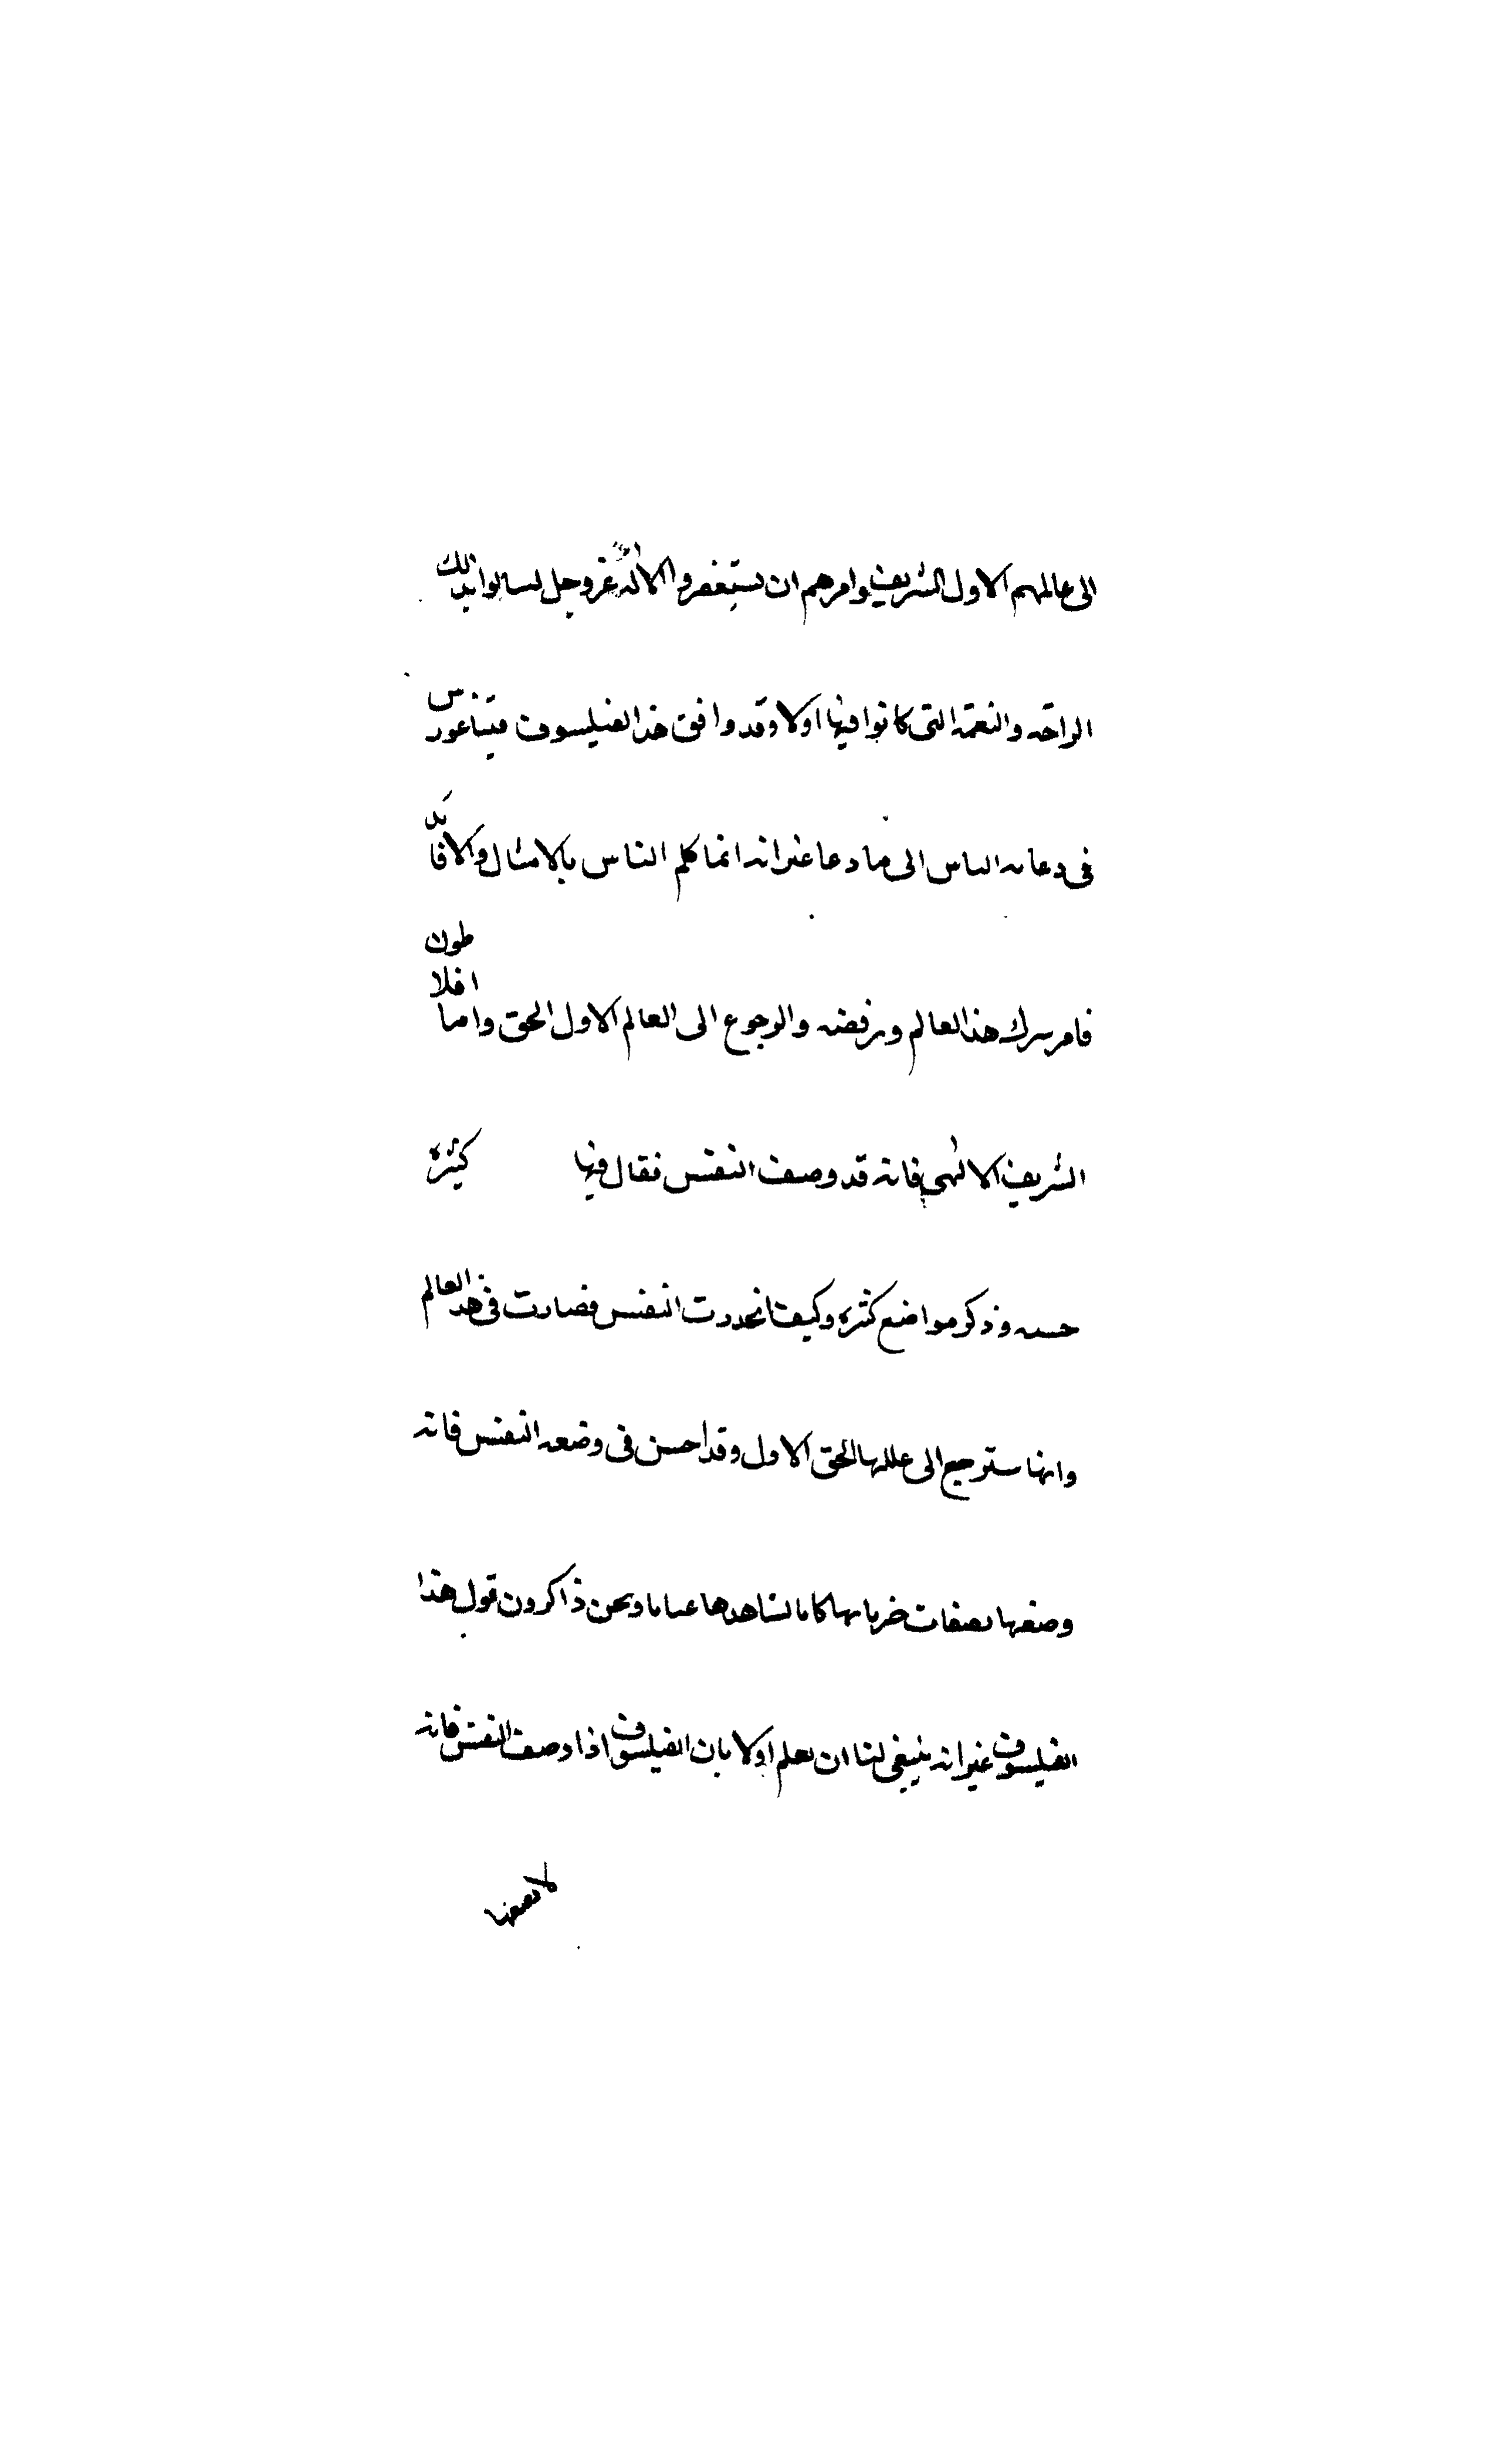 الى عالمهم الاول الشريف وامرهم ان يستغفروا الاله عز وجل لسالوا بذلك
الراحة والنعمة التى كانوا فيها اولا وقد وافق هذا الفيلسوف فيثاغورس
فى دعائه الناس الى ما دعا غير انه انما كلم الناس بالامثال والاوابد
فامر بترك هذا العالم ورفضه والرجوع الى العالم الاول الحق واما افلاطون
الشريف الالهى فانه قد وصف النفس فقال فيها كثيرة
حسنه وذكر مواضع كثيرة وكيف انحدرت النفس فصارت فى هذا العالم
وانها سترجع الى عالمها الحق الاول وقد احسن فى وصفه النفس فانه
وصفها بصفات صرنا بها كانا نشاهدها عيانا ونحن ذاكرون قول هذا
الفيلسوف غير انه ينبغى لنا ان نعلم اولا بان الفيلسوف اذا وصف النفس فانه
لا يصفها